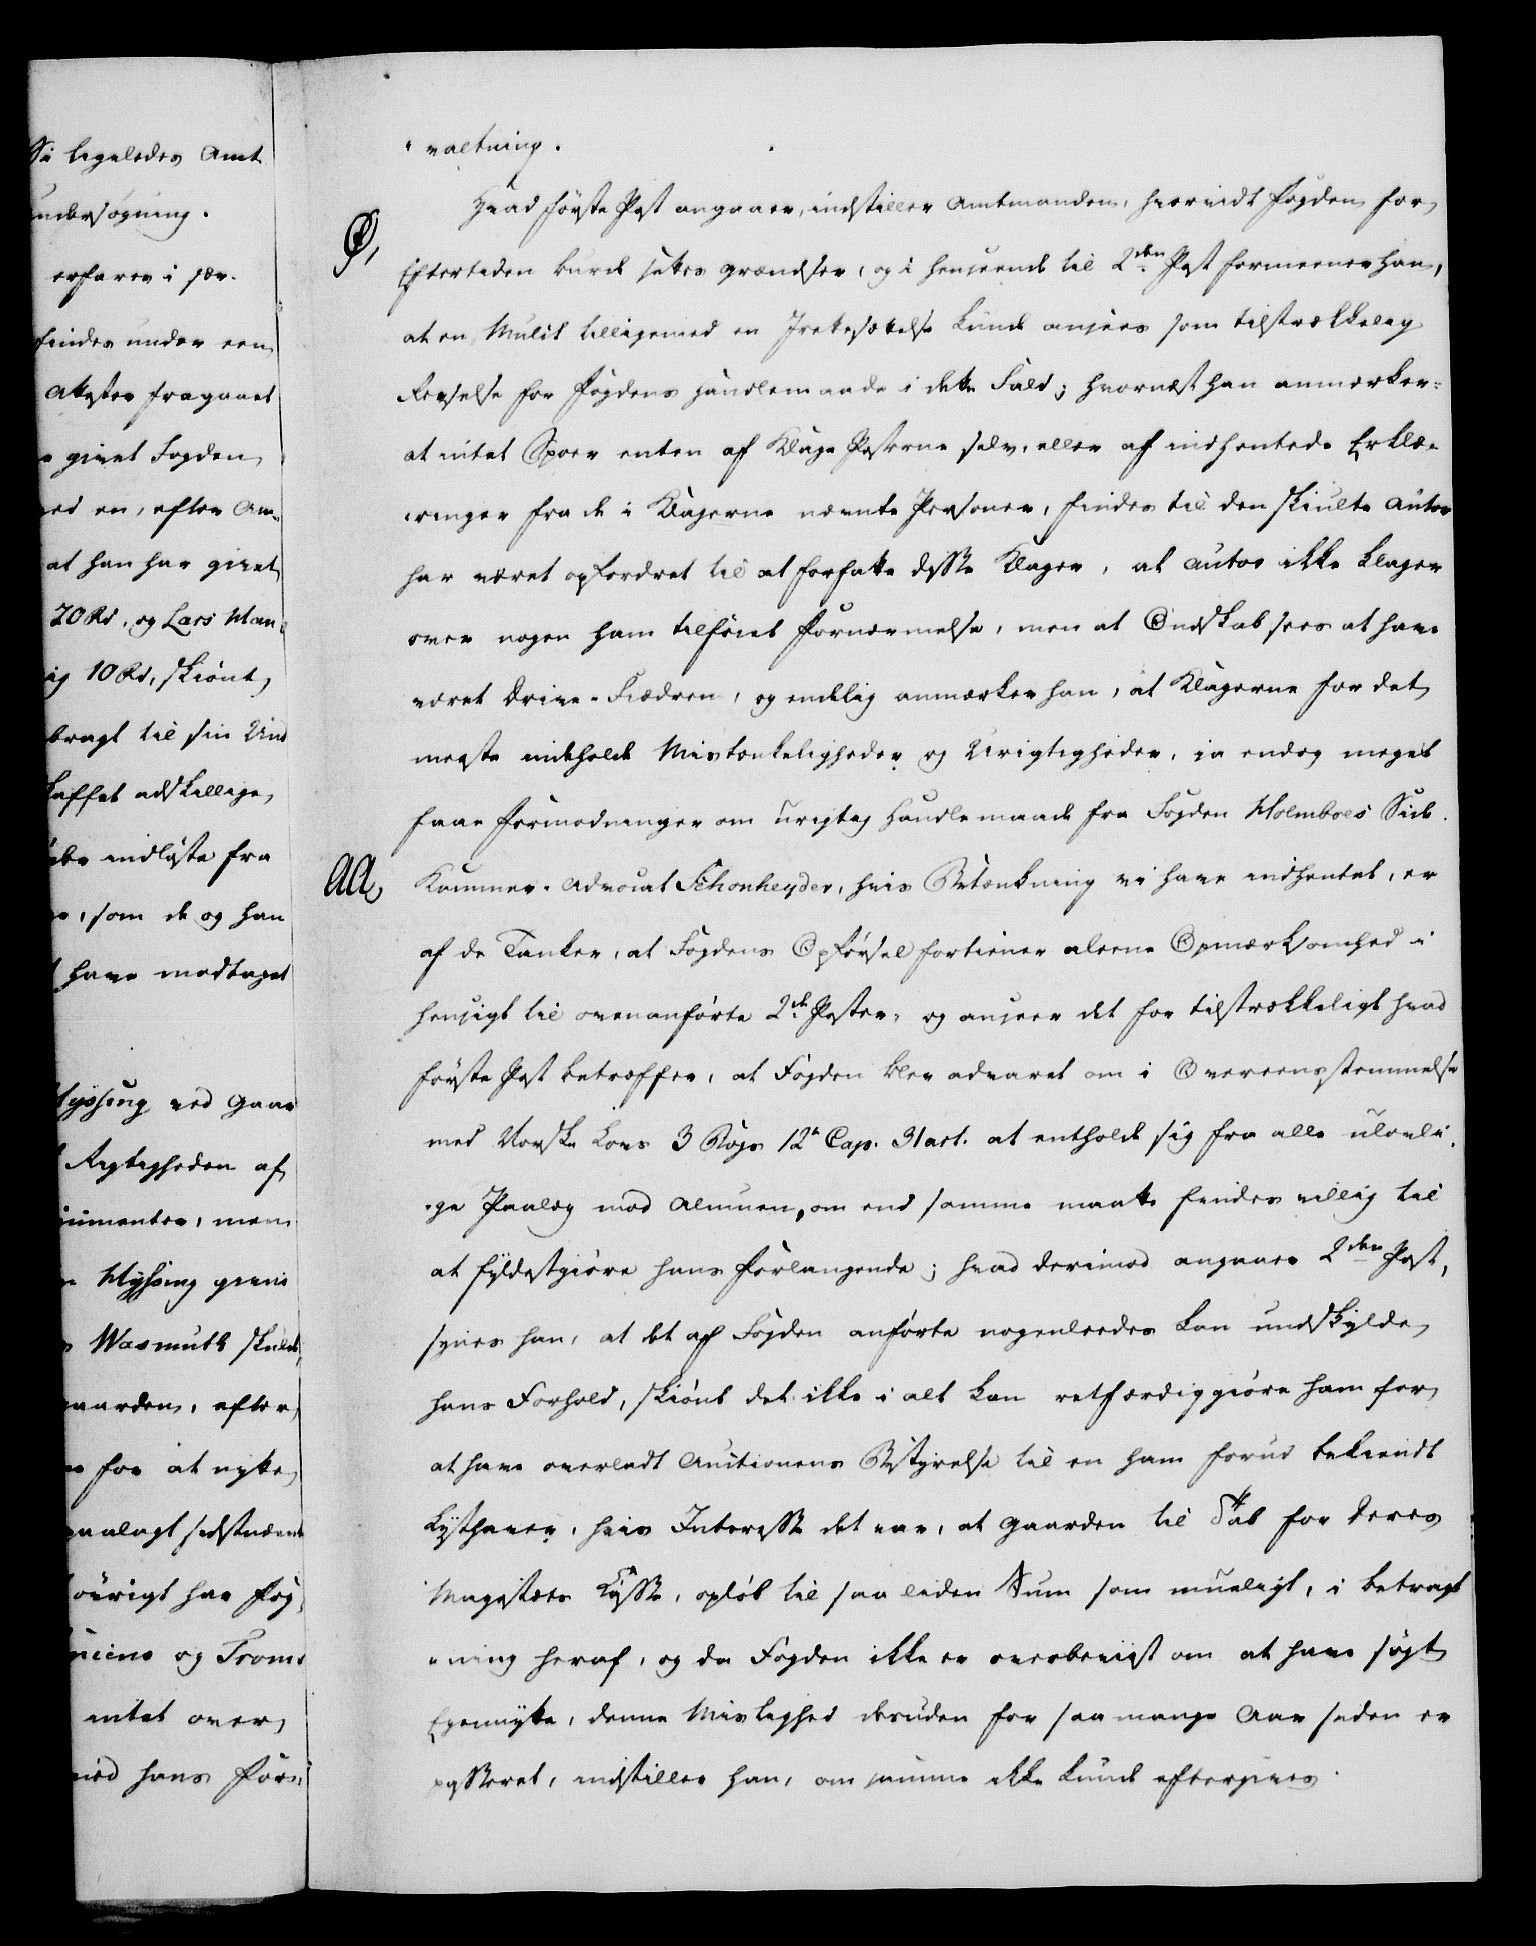 Så ligeledes Amt
undersøgning.
erfarer i sær.
findes under een
Attester fragaaet
givet Fogden
ed en, efter Am-
at han har givet
20 Rd, og Lars Man-
ig 10 Rd, skiønt
bragt til sin Und
kaffet adskillige
indløste fra
, som de og han
have modtaget
Hyssing ved Gaar
Rigtigheden af
umenter, men
Hyssing
Wasmuth skulde
gaarden, efter
for at nytte
paalagt sidstnævnte
øvrigt har Fog
niens og Troms
intet over
med hans For-
valtning.
Hvad første Post angaaer, indstiller Amtmanden, hvorvidt Fogden for
Ø,
Eftertiden burde sættes Grændser, og i Henseende til 2den Post formeener han,
at en Mulct tilligemed en Irettesættelse kunde ansees som tilstrækkelig
Revselse for Fogdens Handlemaade i dette Fald; hvornæst han anmærker
at intet Spoer enten af Klage Posterne selv, eller af indhentede Erklæ-
ringer fra de i Klagerne nævnte Personer, findes til den skiulte Autor
har været opfordret til at forfatte disse Klager, at Autor ikke klager
over nogen ham tilføiet Fornærmelse, men at Ondskab sees at have
været Drive-Fiædren, og endelig anmærker han, at Klagerne for det
meeste indholdt Mistænkeligheder og Urigtigheder, ja endog meget
faae Formodninger om urigtig Handlemaade fra Fogden Holmboes Side.
AA,
Kammer-Advocat Schonheyder, hvis Betænkning vi have indhentet, er
af de Tanker, at Fogdens Opførsel fortiener aleene Opmærksomhed i
Hensigt til ovenanførte 2de Poster, og anseer det for tilstrækkeligt hvad
første Post betræffer, at Fogden blev advaret om i Overeensstemmelse
med Norske Lovs 3 Bogs 12te Cap. 31 art. at entholde sig fra alle ulovli-
ge Paalæg mod Almuen, om end samme maatte findes villig til
at fyldestgiøre hans Forlangende; hvad derimod angaaer 2den Post,
synes han, at det af Fogden anførte nogenleedes kan undskylde
hans Forhold, skiønt det ikke i alt kan retfærdiggiøre ham for
at have overladt Auctionens Bestyrelse til en ham forud bekiendt
Lysthaver, hvis Interesse det var, at Gaarden til Tab for Deres
Majestæts Kasse, opløb til saa liden Sum som mueligt, i Betragt-
ning heraf, og da Fogden ikke er overbeviist om at have søgt
Egennytte, denne Mislighed desuden for saa mange Aar siden er
passeret, indstiller han, om samme ikke kunde eftergives.